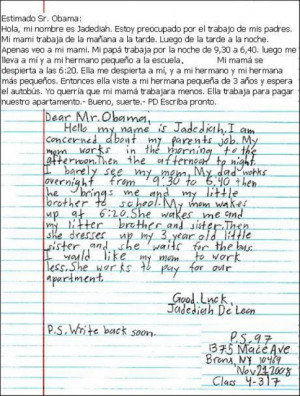 Estimado Sr. Obama:
Hola, mi nombre es Jadediah. Estoy preocupado por el trabajo de mis padres.
Mi mami trabaja de la mañana a la tarde. Luego de la tarde a la noche.
Apenas veo a mi mami. Mi papá trabaja por la noche de 9,30 a 6,40. luego me
lleva a mí y a mi hermano pequeño a la escuela. Mi mamá se
despierta a las 6:20. Ella me despierta a mí, y a mi hermano y mi hermana
más pequeños. Entonces ella viste a mi hermana pequeña de 3 años y espera
el autobús. Yo querría que mi mamá trabajara menos. Ella trabaja para pagar
nuestro apartamento.- Bueno, suerte.- PD Escriba pronto.
Dear Mr. Obama,
Hello my name is Jadediah, I am
concerned about my parents job. My
mom works in the morning to the
afternoon. Then the afternoon to night.
I barely see my mom. My dad works
overnight from 9:30 to 6:40 then
he brings me and my little
brother to school. My mom wakes
up at 6:20. She wakes me and
my litter brother and sister. Then
she dresses up my 3 year old little
sister and she waits for the bus.
I would like my mom to work
less. She works to pay for our
apartment.
Good Luck,
Jadediah De Leon
P.S. Write back soon.
P.S. 97
1375 Mace Ave
Bronx, NY 10469
Nov 24, 2008
Class 4-317